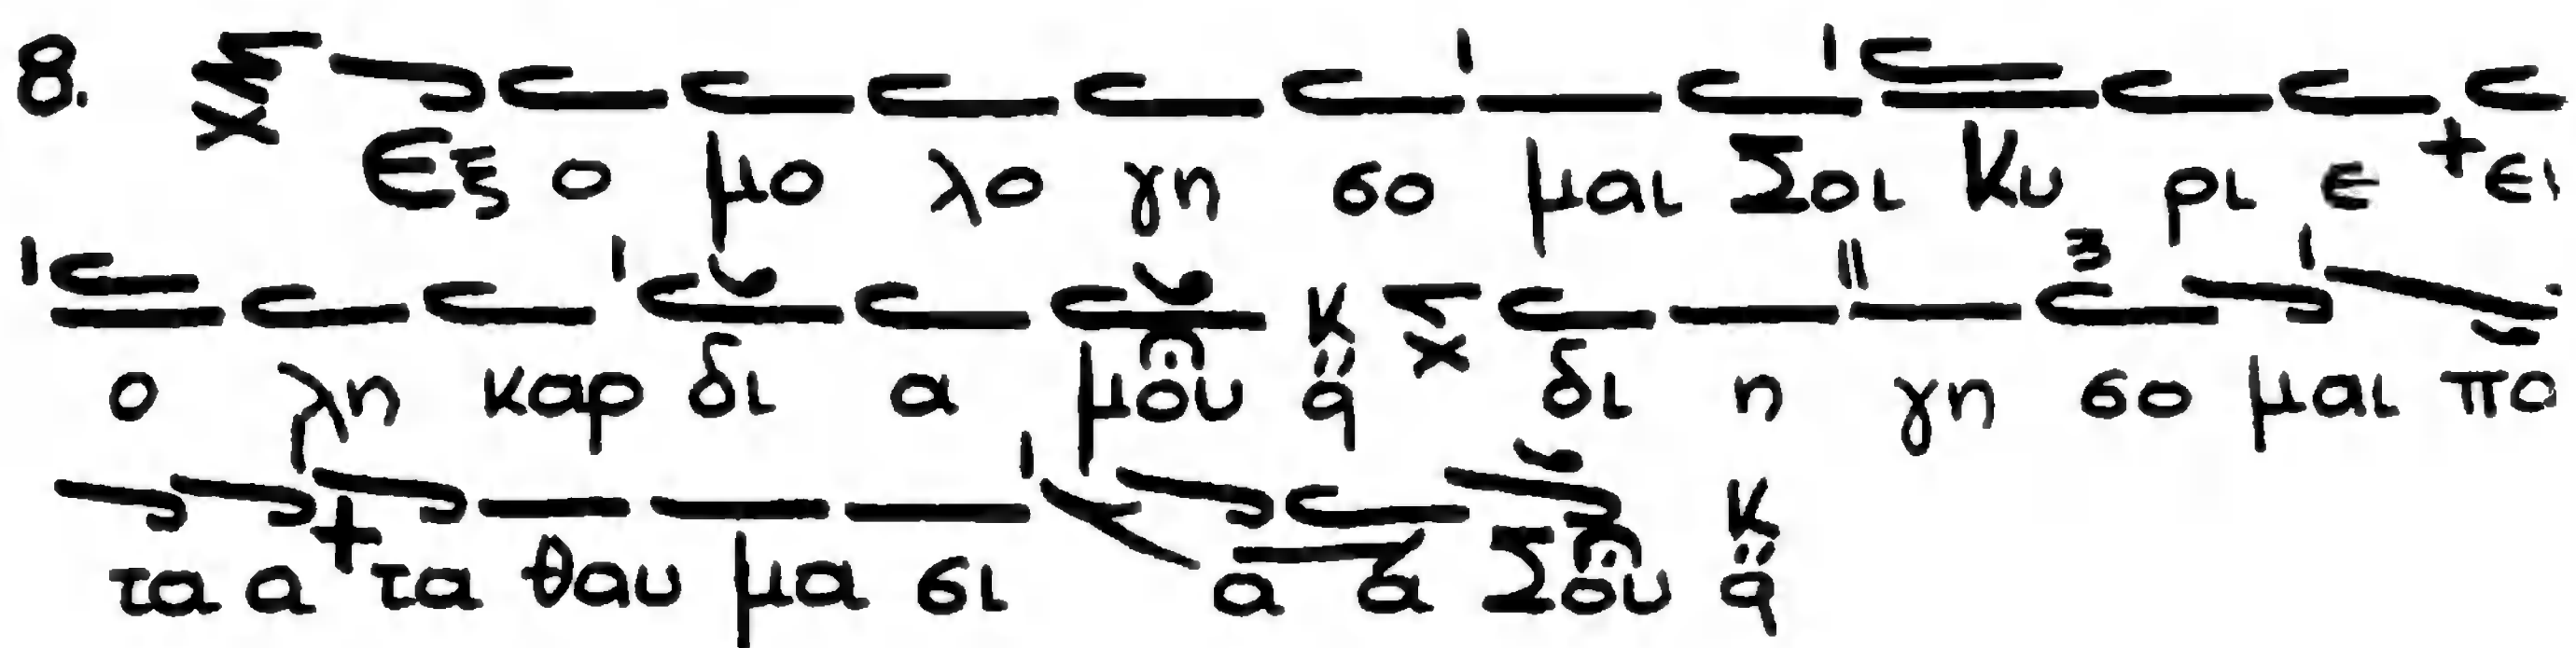 8. Εξ ο μο λο γη σο μαι Σοι Κυ ρι ε + ει
ο λη καρ δι α μου δι η γη σο μαι πα
τα α + τα θαυ μα σι α α Σου